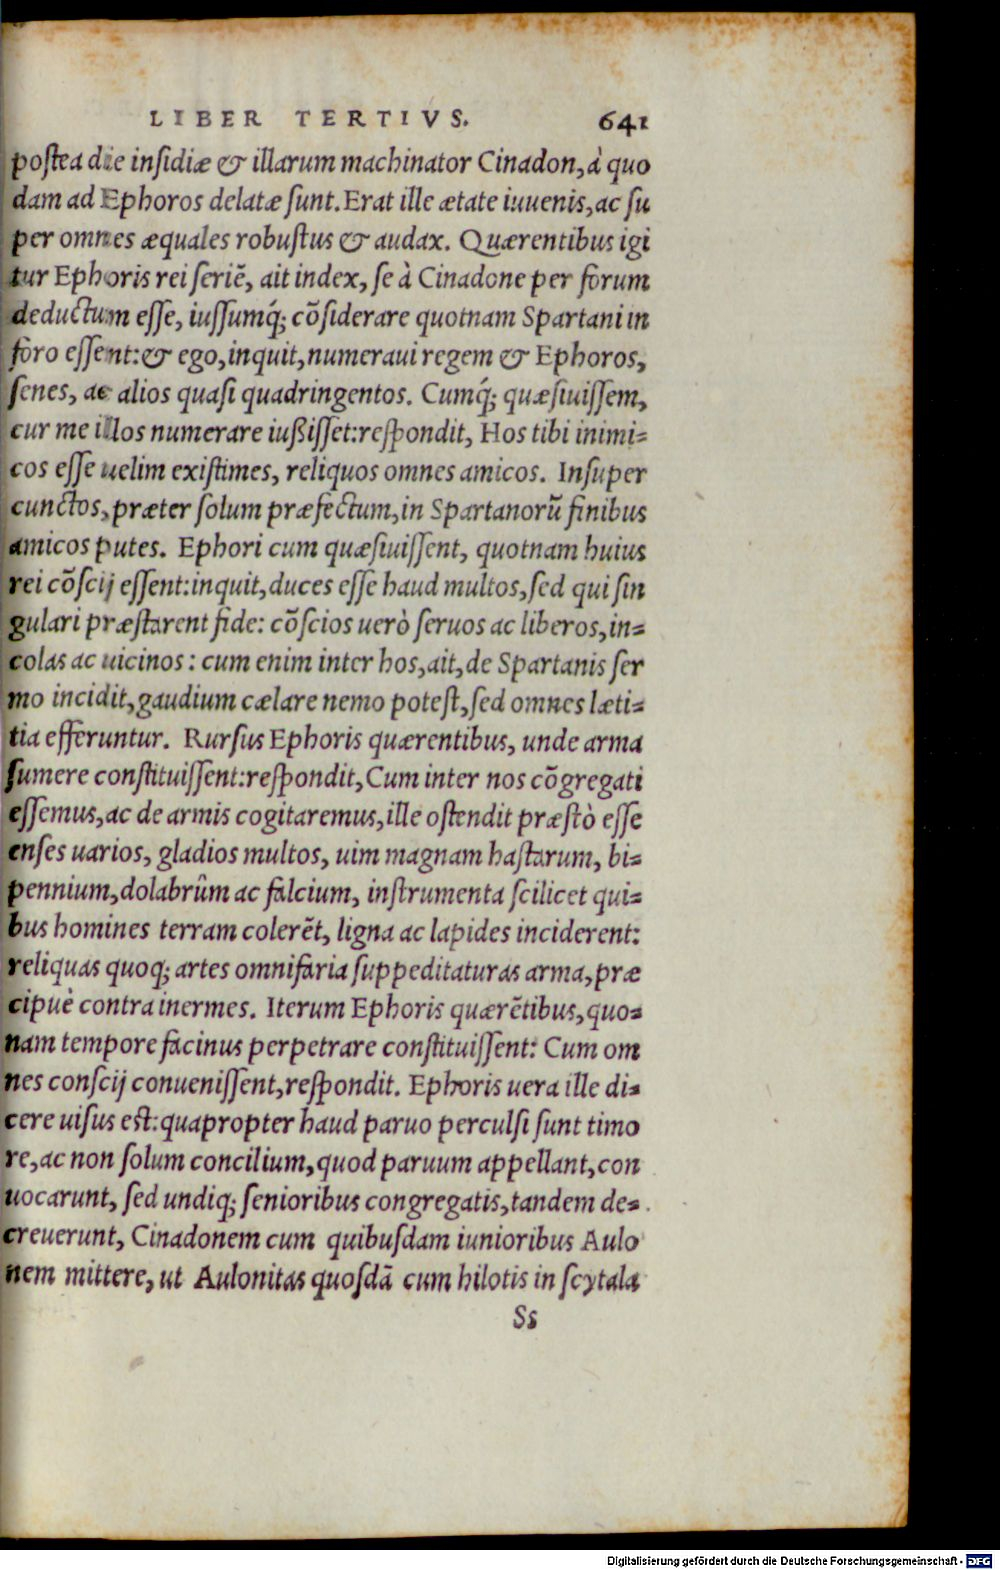 LIBER TERTIVS. 641
postea die insidiæ & illarum machinator Cinadon, à quo
dam ad Ephoros delatæ sunt. Erat ille ætate iuuenis, ac su
per omnes æquales robustus & audax. Quærentibus igi
tur Ephoris rei seriē, ait index, se à Cinadone per forum
deductum esse, iussumq́; cōsiderare quotnam Spartani in
foro essent: & ego, inquit, numeraui regem & Ephoros,
senes, ac alios quasi quadringentos. Cumq́; quæsiuissem,
cur me illos numerare iußisset: respondit, Hos tibi inimi=
cos esse uelim existimes, reliquos omnes amicos. Insuper
cunctos, præter solum præfectum, in Spartanorū finibus
amicos putes. Ephori cum quæsiuissent, quotnam huius
rei cōscij essent: inquit, duces esse haud multos, sed qui sin
gulari præstarent fide: cōscios uerò seruos ac liberos, in=
colas ac uicinos: cum enim inter hos, ait, de Spartanis ser
mo incidit, gaudium cælare nemo potest, sed omnes læti=
tia efferuntur. Rursus Ephoris quærentibus, unde arma
sumere constituissent: respondit, Cum inter nos cōgregati
essemus, ac de armis cogitaremus, ille ostendit præstò esse
enses uarios, gladios multos, uim magnam hastarum, bi=
pennium, dolabrûm ac falcium, instrumenta scilicet qui=
bus homines terram colerēt, ligna ac lapides inciderent:
reliquas quoq; artes omnifaria suppeditaturas arma, præ
cipuè contra inermes. Iterum Ephoris quærētibus, quo=
nam tempore facinus perpetrare constituissent: Cum om
nes conscij conuenissent, respondit. Ephoris uera ille di=
cere uisus est: quapropter haud paruo perculsi sunt timo
re, ac non solum concilium, quod paruum appellant, con
uocarunt, sed undiq; senioribus congregatis, tandem de=
creuerunt, Cinadonem cum quibusdam iunioribus Aulo
nem mittere, ut Aulonitas quosdā cum hilotis in scytala
Ss
Digitalisierung gefördert durch die Deutsche Forschungsgemeinschaft - DFG